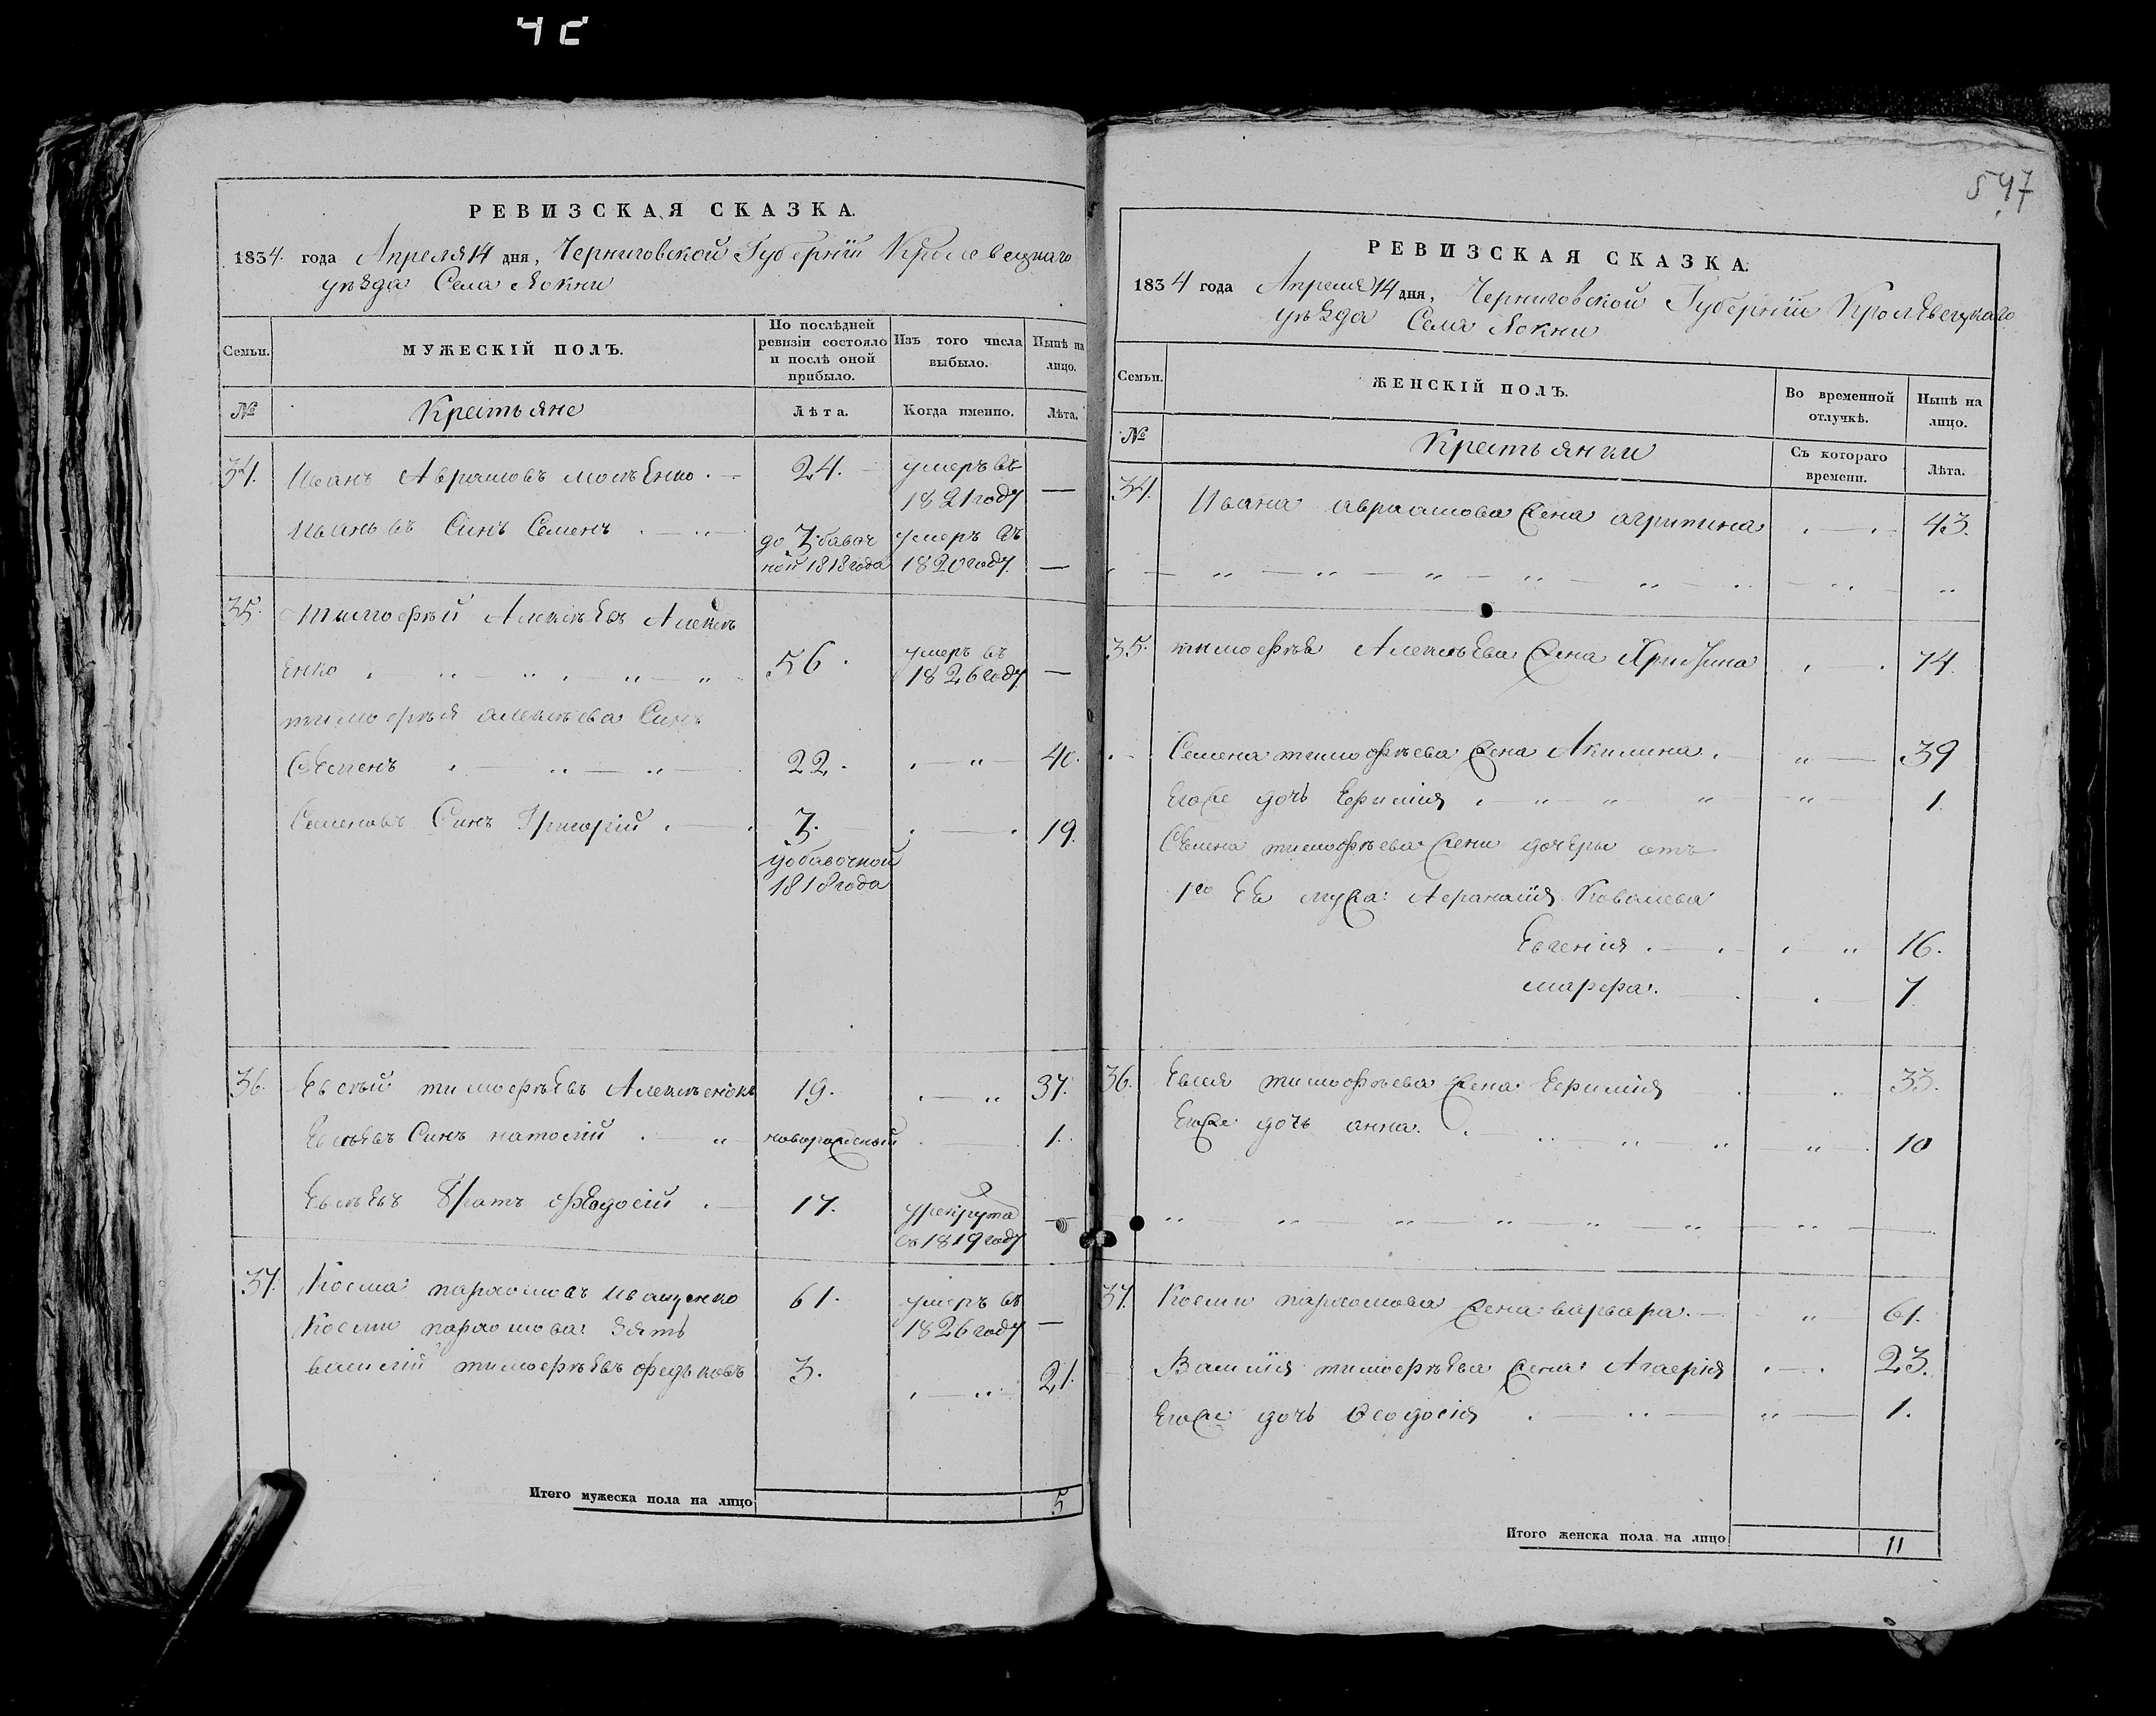 4C
547
РЕВИЗСКАЯ СКАЗКА.
1834. года Апреля 14 дня, Черниговской Губерніи Кролевецкаго
уѣзда Села Локни
Семьи.
МУЖЕСКІЙ ПОЛЪ.
По послѣдней ревизіи состояло и послѣ оной прибыло.
Изъ того числа выбыло.
Нынѣ на лицо.
№
Крестьяне
Лѣта.
Когда именно.
Лѣта.
34. Иванъ Аврамовъ 24. умеръ въ
1821 году —
Ивановъ Синъ Семенъ до 7. бавоч умеръ въ
ной 1818 года 1820 году —
35. Тимофѣй Алексѣевъ Алексѣ
енко 56. умеръ въ
1826 году —
тимофѣя алексѣева Синъ
Семенъ 22. 40.
Семеновъ Синъ Григорій 3. 19.
добавочной
1818 года
36. Евсѣй тимофѣевъ Алексѣенокъ 19. 37.
Евсѣевъ Синъ новорожденный 1.
Евсѣевъ братъ Федосій 17. у рекрута
съ 1819 году
37. Косма пархомовъ Иващенко 61. умеръ въ
Косми пархомова Зять 1826 году —
василій тимофѣевъ федьковъ 3. 21.
Итого мужеска пола на лицо 5
РЕВИЗСКАЯ СКАЗКА.
1834 года Апреля 14 дня, Черниговской Губерніи Кролевецкаго
уѣзда Села Локни
Семьи.
ЖЕНСКІЙ ПОЛЪ.
Во временной отлучкѣ.
Нынѣ на лицо.
№
Крестьянки
Съ котораго времени.
Лѣта.
34. Ивана аврамова жена агрипина 43.
35. тимофѣя Алексѣева жена Христина 74.
Семена тимофѣева жена Акилина 39
Егоже дочь Ефимія 1.
Семена тимофѣева жени дочери отъ
1го Ея мужа Афанасія Ковалева
Евгенія 16.
марфа. 7
36. Евсея тимофѣева жена Ефимія 33.
Егоже дочь анна. 10
37. Косми пархомова жена варвара. 61.
Василія тимофѣева жена Агафія 23.
Егоже дочь Феодосія 1.
Итого женска пола на лицо 11